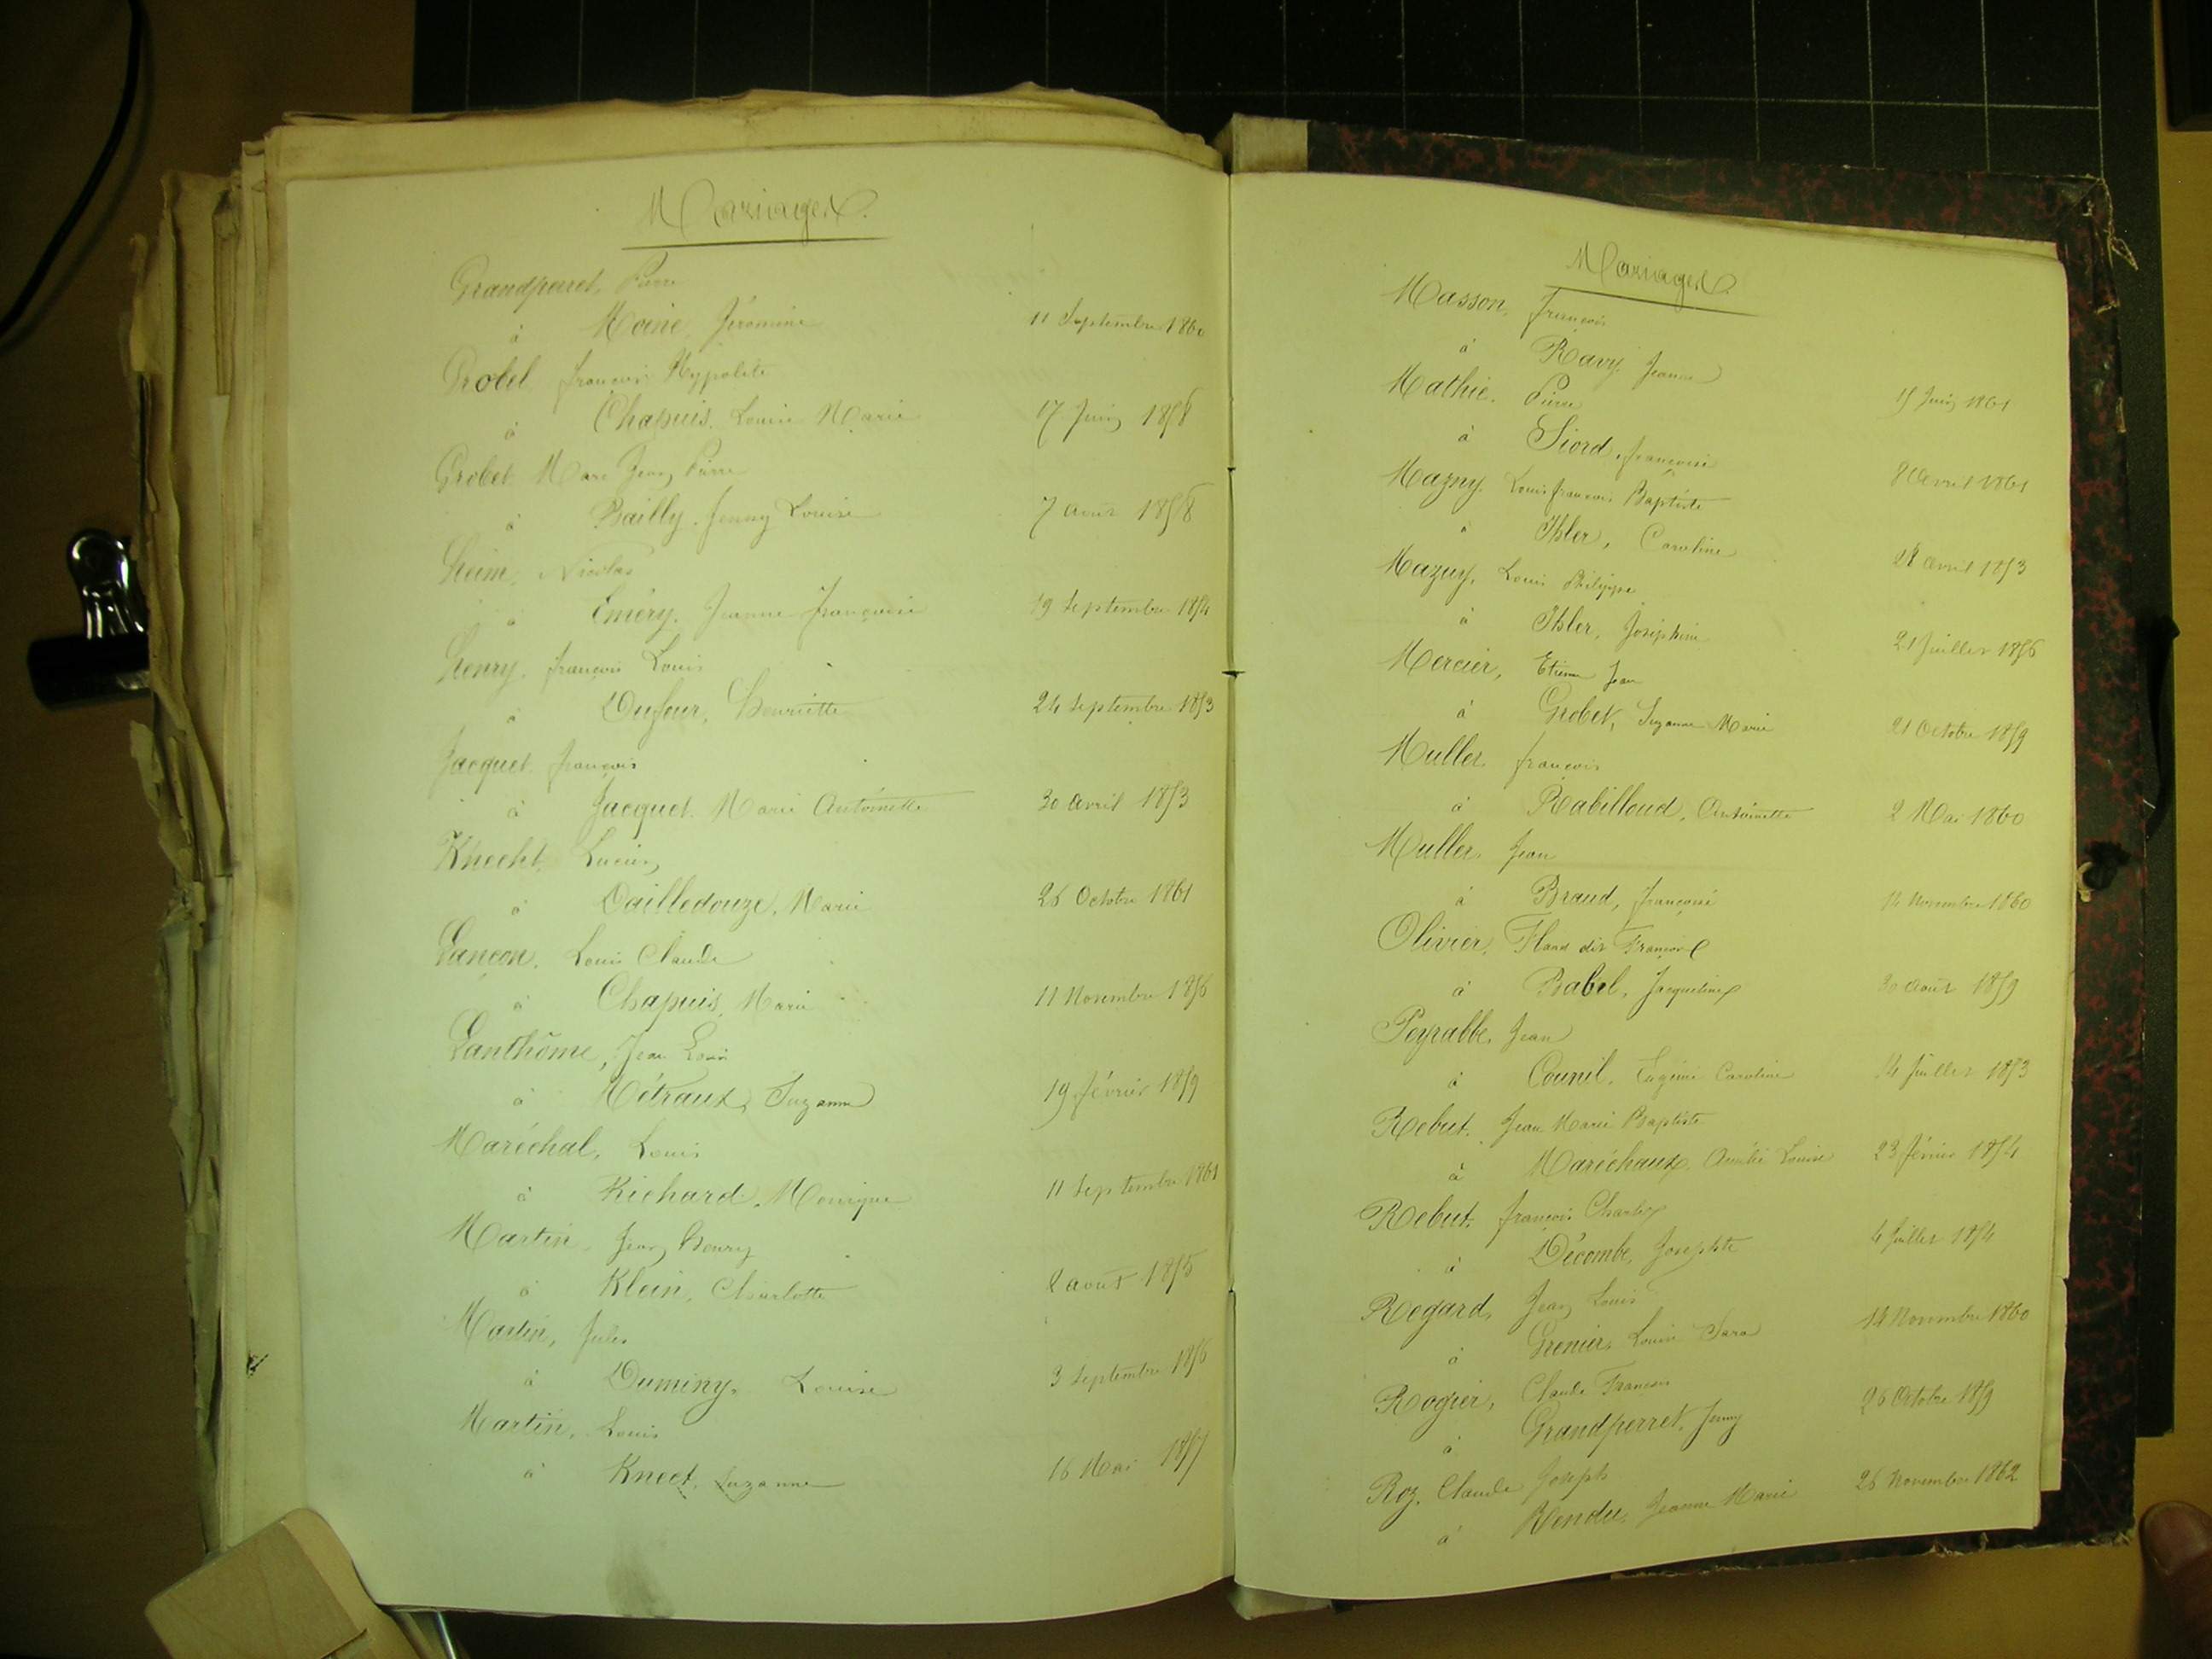 Mariages.
Grandperret, Pierre
à Moine, Jéromine 11 Septembre 1860
Grobel, François Hyppolite
à Chapuis, Louise Marie 17 Juin 1858
Grobet Marc Jean Pierre
à Bailly, Jenny Louise 7 août 1858
Heim, Nicolas
à Eméry, Jeanne Françoise 19 Septembre 1854
Henry, François Louis
à Dufour, Henriette 24 Septembre 1853
Jacquet François
à Jacquet Marie Antoinette 30 avril 1853
Knecht, Lucien
à Dailledouze, Marie 26 Octobre 1861
Lançon, Louis Claude
à Chapuis, Marie 11 Novembre 1856
Lanthôme, Jean Louis
à Métraux, Suzanne 19 février 1859
Maréchal, Louis
à Richard, Monique 11 Septembre 1861
Martin, Jean Henry
à Klein, Charlotte 8 août 1855
Martin, Jules
à Duminy, Louise 3 Septembre 1856
Martin, Louis
à Knect, Suzanne 16 Mai 1857
Mariages.
Masson, François
à Ravy, Jeanne 15 Juin 1861
Mathie, Pierre
à Siord, Françoise 8 avril 1861
Mazny, Louis François Baptiste
à Ihler, Caroline 28 avril 1853
Mazuy, Louis Philippe
à Ihler, Joséphine 21 Juillet 1856
Mercier, Etienne Jean
à Grobet, Suzanne Marie 21 Octobre 1859
Muller, François
à Rabilloud, Antoinette 2 Mai 1860
Muller, Jean
à Braud, Françoise 14 Novembre 1860
Olivier, dit François
à Babel, Jacqueline 30 août 1859
Peyrabbe, Jean
à Counil, Eugénie Caroline 14 Juillet 1853
Rebut, Jean Marie Baptiste
à Maréchaux, Amélie Louise 23 février 1854
Rebut, François Charles
à Décombe, Josephte 4 Juillet 1854
Regard, Jean Louis
à Grenier, Louise Sara 14 Novembre 1860
Rogier, Claude François
à Grandperret, Jenny 26 Octobre 1859
Roz, Claude Joseph
à Rendu, Jeanne Marie 26 Novembre 1862